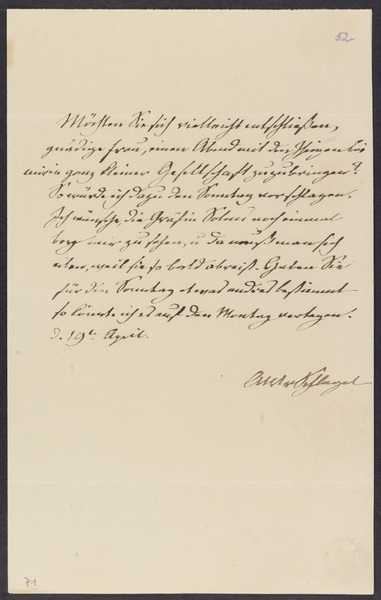 52
Möchten Sie sich vielleicht entschließen,
gnädige Frau, einen Abend mit den Ihrigen bei
mir in ganz kleiner Gesellschaft zuzubringen?
So würde ich dazu den Sonntag vorschlagen.
Ich wünsche, die Gräfin Solms noch einmal
bey mir zu sehen, u da muß man sich
eilen, weil sie so bald abreist. Haben Sie
für den Sonntag etwas andres bestimmt
so könnte ich es auf den Montag verlegen.
d. 19t April.
AWvSchlegel
71